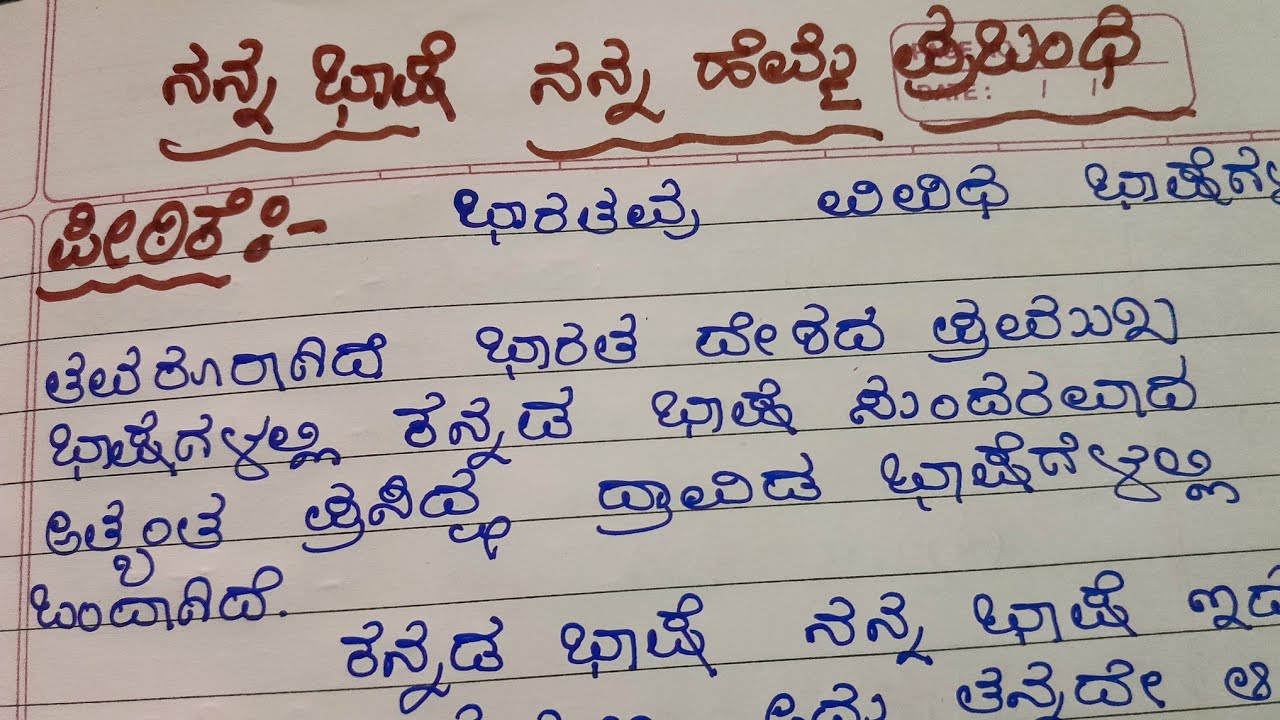 ನನ್ನ ಭಾಷೆ ನನ್ನ ಹೆಮ್ಮೆ ಪ್ರಬಂಧ
DATE:
ಪೀಠಿಕೆ :-   ಭಾರತವು ವಿವಿಧ ಭಾಷೆಗಳ
ತವರೂರಾಗಿದೆ ಭಾರತ ದೇಶದ ಪ್ರಮುಖ
ಭಾಷೆಗಳಲ್ಲಿ ಕನ್ನಡ ಭಾಷೆ ಸುಂದರವಾದ
ಅತ್ಯಂತ ಪ್ರಸಿದ್ಧ ದ್ರಾವಿಡ ಭಾಷೆಗಳಲ್ಲಿ
ಒಂದಾಗಿದೆ.
ಕನ್ನಡ ಭಾಷೆ ನನ್ನ ಭಾಷೆ
ತನ್ನದೇ